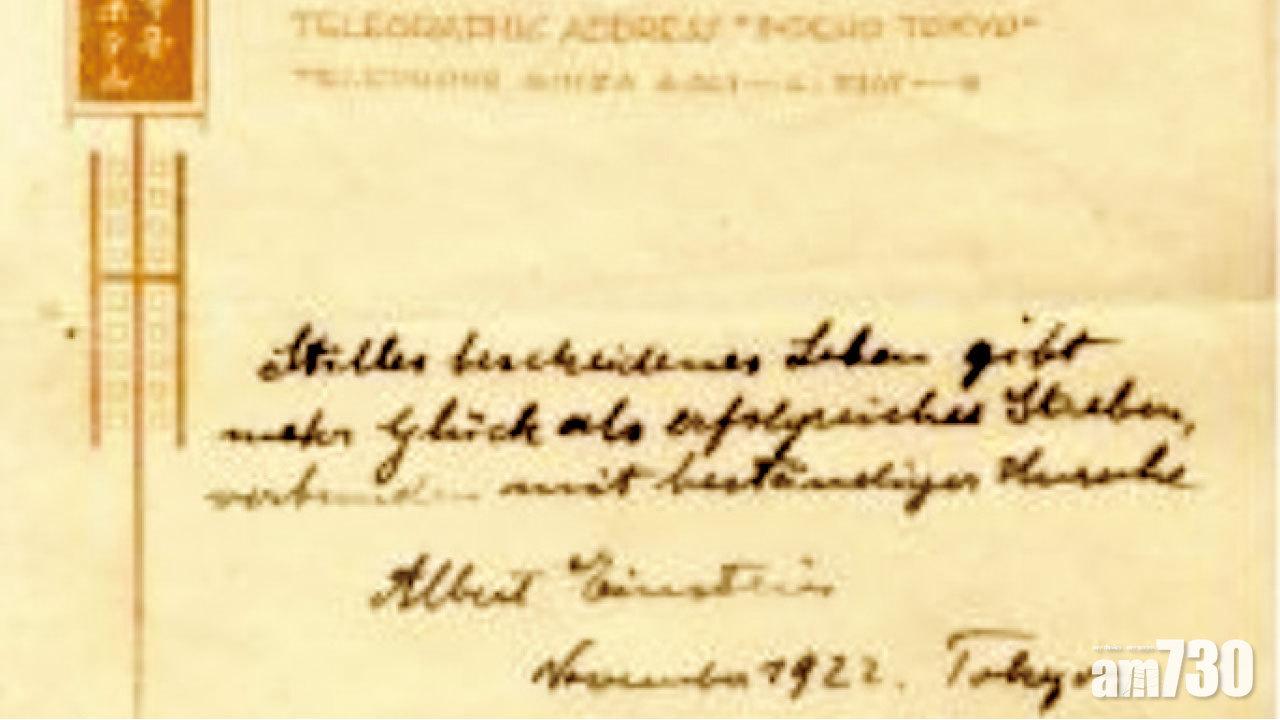 TELEGRAPHIC ADDRESS "IMPEHO TOKYO"
TELEPHONE GINZA
Stilles bescheidenes Leben gibt
mehr Glück als erfolgreiches Streben,
verbunden mit beständiger Unruhe
Albert Einstein
November 1922. Tokyo
am730